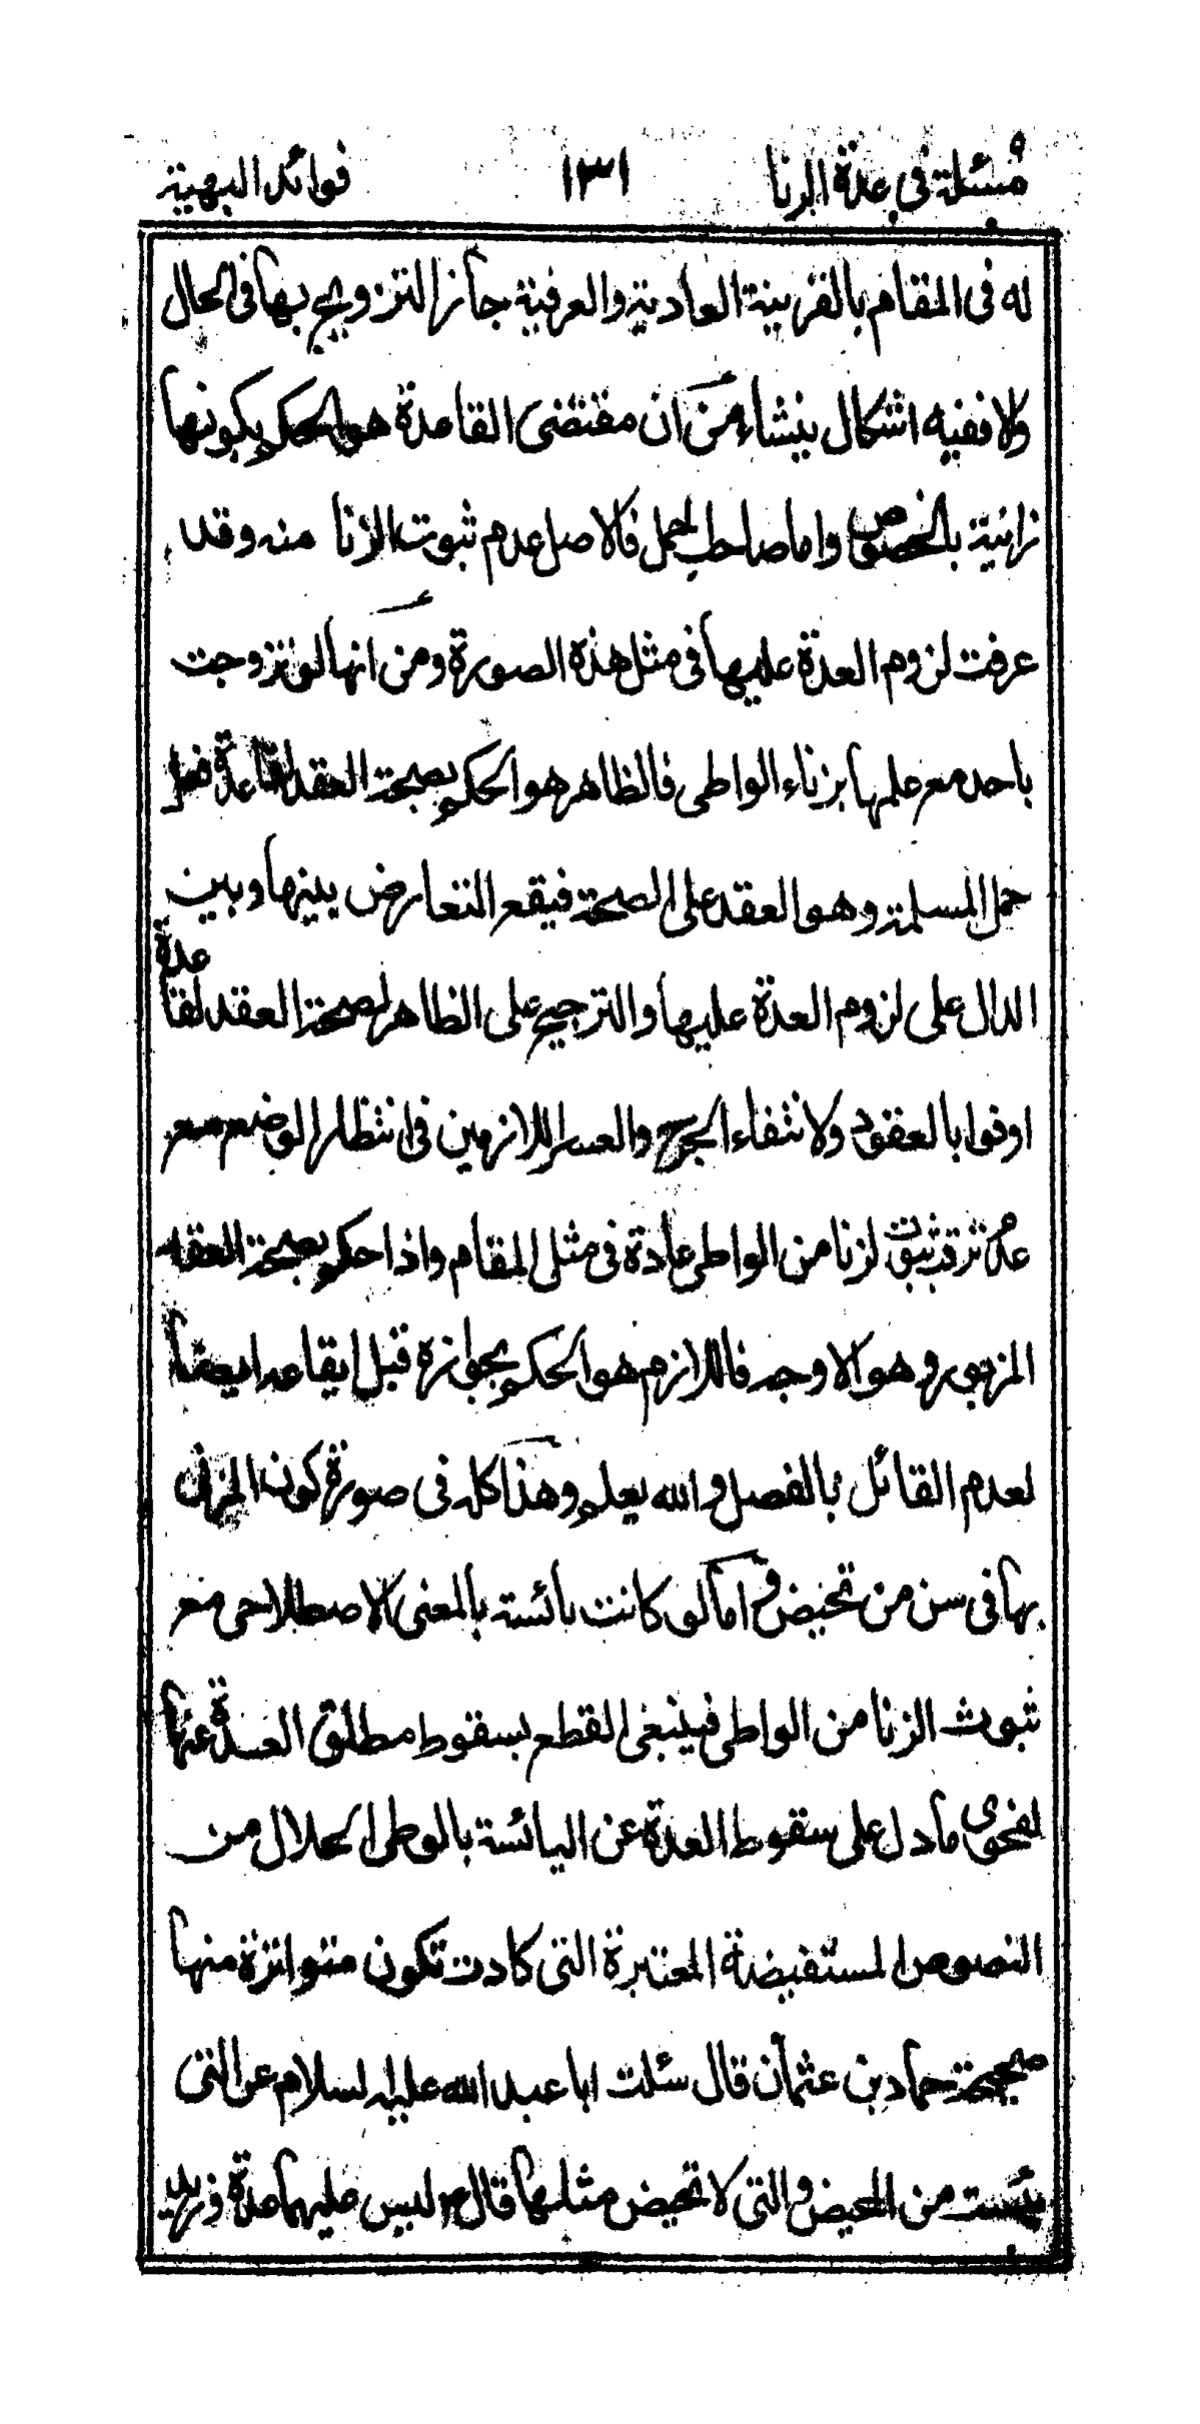 مسئلة في عدة الزنا ١٣١ فوائد البهية
له فى المقام بالقرينة العادية والعرفية جاز التزويج بها فى الحال
ولا ففيه اشكال ينشاء من ان مقتضى القاعدة هو الحكم بكونها
زانية بالخصوص واما صاحب الحمل فالاصل عدم ثبوت الزنا منه وقد
عرفت لزوم العدة عليها فى مثل هذه الصورة ومن انها لو تزوجت
باحد مع علمها بزناء الواطى فالظاهر هو الحكم بصحة العقد لقاعدة
حمل المسلمة وهو العقد على الصحة فيقع التعارض بينها وبين
الدال على لزوم العدة عليها والترجيح على الظاهر لصحة العقد لقاعدة
اوفوا بالعقود ولانتفاء الحرج والعسر اللازمين فى انتظار الوضع مع
ترقب ثبوت لزنا من الواطى عادة فى مثل المقام واذا حكم بصحة العقد
المزبور وهو الاوجه فاللازم هو الحكم بجوازه قبل ايقاعه ايضا
لعدم القائل بالفصل والله يعلم وهذا كله فى صورة كون المزنى
بها فى سن من تحيض واما لو كانت يائسة بالمعنى الاصطلاحى مع
ثبوت الزنا من الواطى فينبغى القطع بسقوط مطلق العدة عنها
لفحوى ما دل على سقوط العدة عن اليائسة بالوطى الحلال من
النصوص المستفيضة المعتبرة التى كادت تكون متواترة منها
صحيحة حماد بن عثمان قال سئلت ابا عبد الله عليه لسلام عن التى
يئست من المحيض والتى لا تحيض مثلها قال ع ليس عليهما عدة